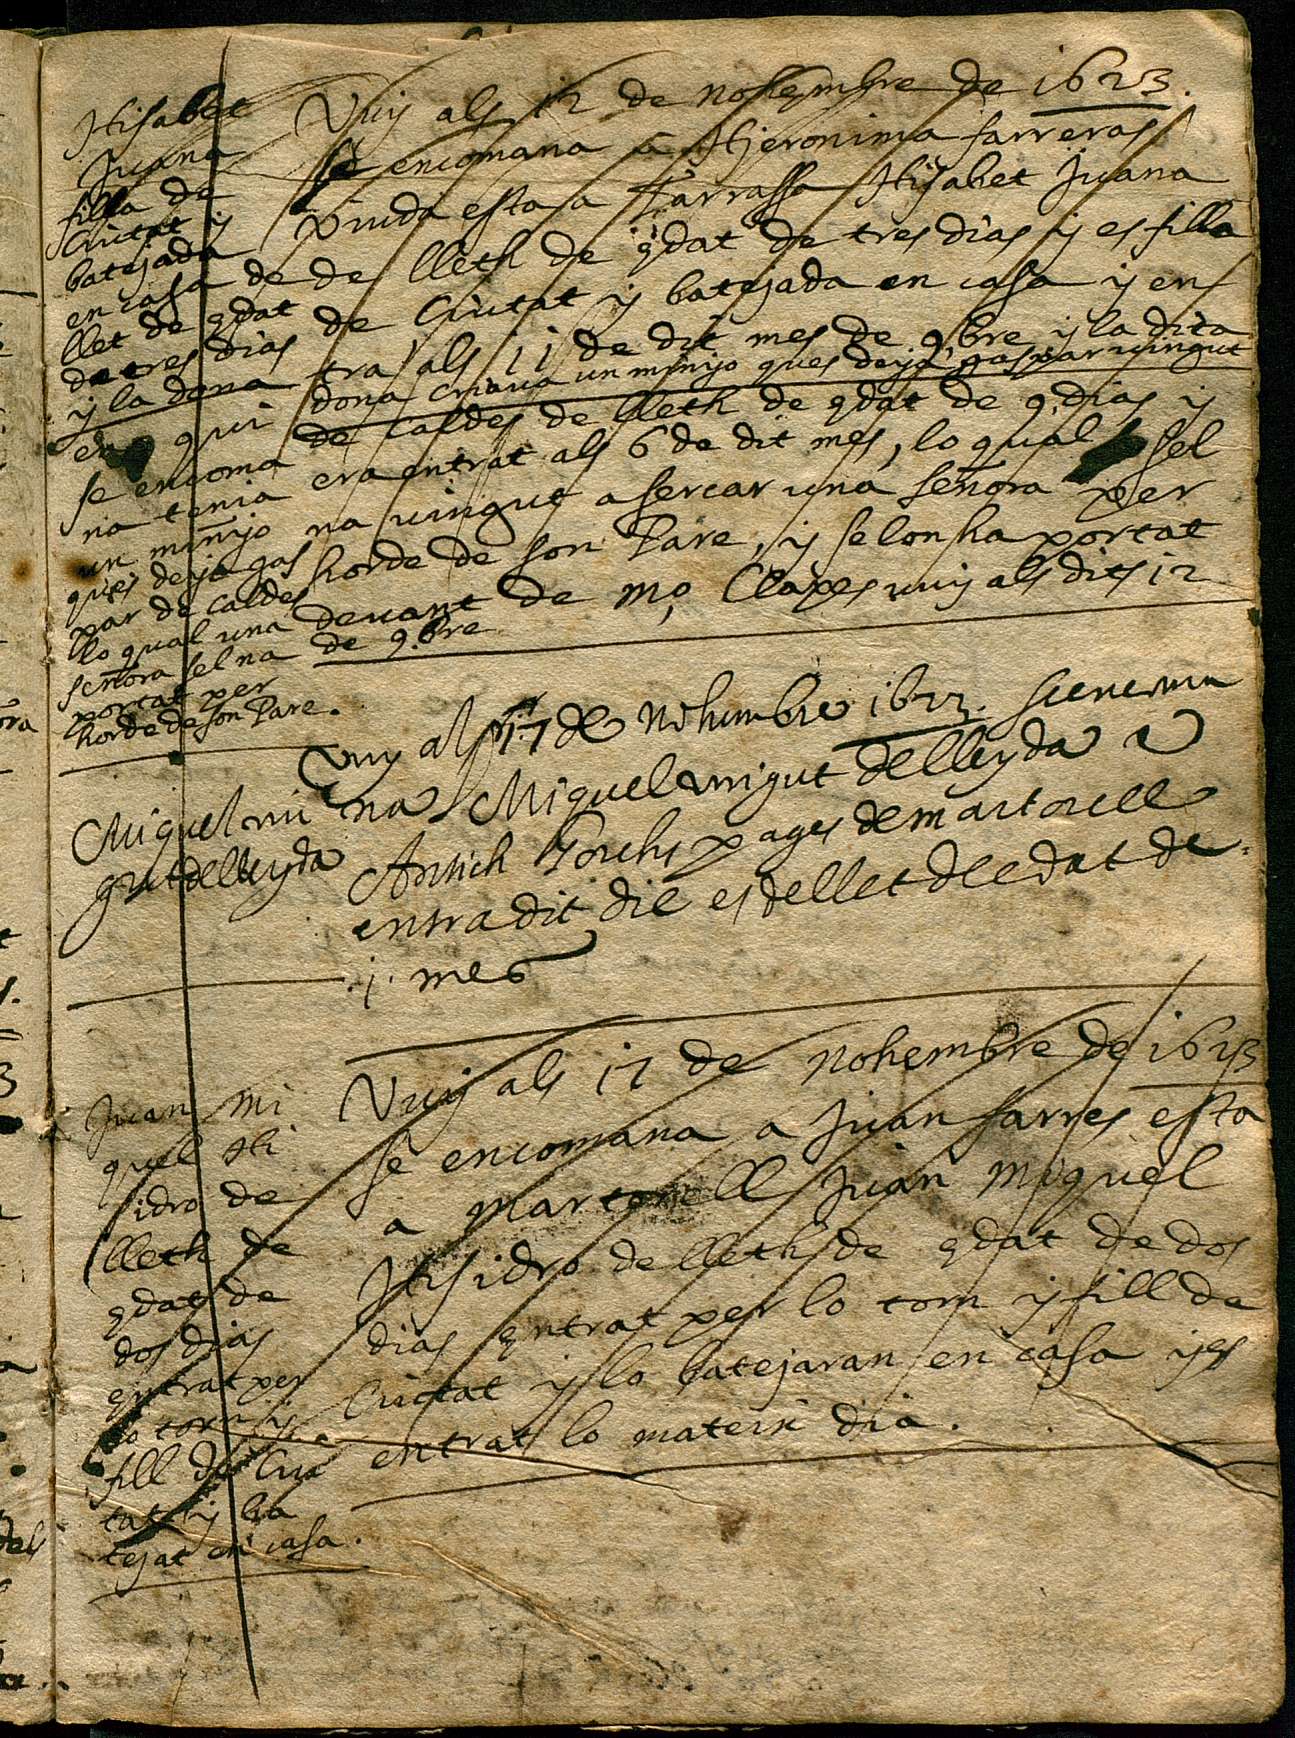 Hisabet
Juana
filla de
Ciutat y
batejada
en casa de
llet de edat
de tres dias
y la dona
en qui
se encoma
na tenia
un minyo
ques deya gas
par de caldes
lo qual una
señora sel na
portat per
horde de son Pare.
Vuy als 12 de nohembre de 1623.
se encomana a Hjeronima farreras
viuda esta a Tarrassa Hisabet Juana
de lleth de edat de tres dias y es filla
de Ciutat y batejada en casa y en
tra als 11 de dit mes de 9bre y la dita
dona criava un minyo ques deya gaspar vingut
de caldes de lleth de edat de 9 dias y
era entrat als 6 de dit mes, lo qual sel
na vingut a sercar una señora per
horde de son Pare, y se lon ha portat
devant de mo Clapes vuy als dits 12
de 9.bre
Miquel vin
gut de lleyda
Vuy als 17 de nohembre 1623. se encoma
na Miquel vingut de lleyda a
Antich Torchs pages de martorell
entra dit die es de llet de edat de
.1. mes
Juan Mi
quel Hi
sidro de
lleth de
edat de
dos dias
entrat per
lo torn y
fill de Ciu
tat y ba
tejat en casa.
Vuy als 17 de nohembre de 1623
se encomana a Juan farres esta
a Martorell Juan Miquel
Hisidro de lleth de edat de dos
dias entrat per lo torn y fill de
Ciutat y lo batejaran en casa y es
entrat lo mateix dia.